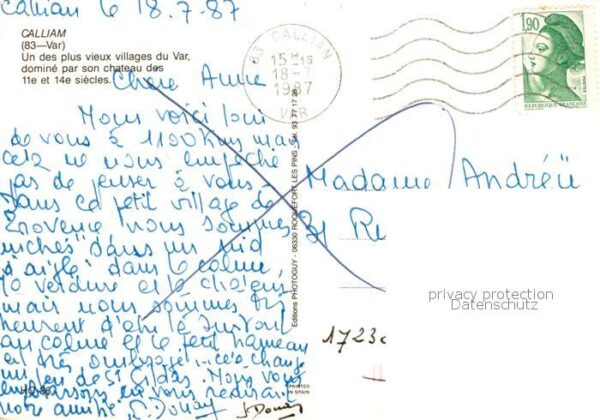 Callian le 18.7.87
CALLIAM
(83—Var)
Un des plus vieux villages du Var,
dominé par son chateau des
11e et 14e siècles.
83 CALLIAN
15H15
18-7
1987
VAR
1,90
REPUBLIQUE FRANÇAISE
Chère Anne
Nous voici loin
de vous à 1100 kms mais
cela ne nous empêche
pas de penser à vous
Dans ce petit village de
Provence nous sommes
nichés "dans un nid
d'aigle" dans le calme,
la verdure et la chaleur
mais nous sommes
heureux d'être là surtout
au calme et le petit hameau
est très ombragé... cela change
un peu de St Gildas. Nous vous
embrassons en vous redisant
notre amitié. Douay
Madame Andréü
31 Ru
1723
Editions PHOTOGUY - 06330 ROQUEFORT LES PINS - Tél. 93 77 17 28
PRINTED
IN SPAIN
privacy protection
Datenschutz